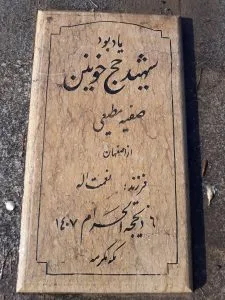 یادبود
شهید حج خونین
صفیه مطیعی
از اصفهان
فرزند: نعمت اله
۶ ذیحجه الحرام ۱۴۰۷
مکه مکرمه